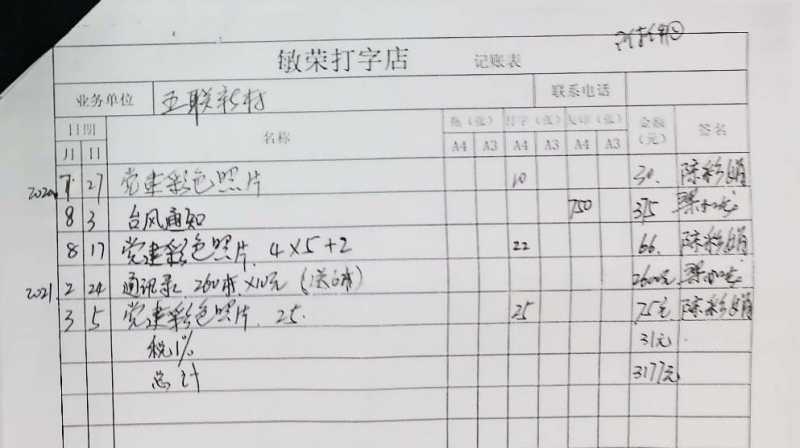 敏荣打字店 记账表
业务单位 五联新村 联系电话
日期 名称 (张) 打字(张) 复印(张) 金额(元) 签名
月 日 A4 A3 A4 A3 A4 A3
2020 7 27 党建彩色照片 10 30. 陈彩娟
8 3 台风通知 750 375
8 17 党建彩色照片. 4×5+2 22 66. 陈彩娟
2021. 2 24 通讯录 260本×10元(送6本) 2600元
3 5 党建彩色照片. 25. 25 75元 陈彩娟
税1% 31元
总计 3177元